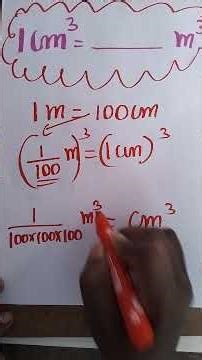 1 cm³ = ____ m³
1 m = 100 cm
(1/100 m)³ = (1 cm)³
1/100x100x100 m³ = cm³